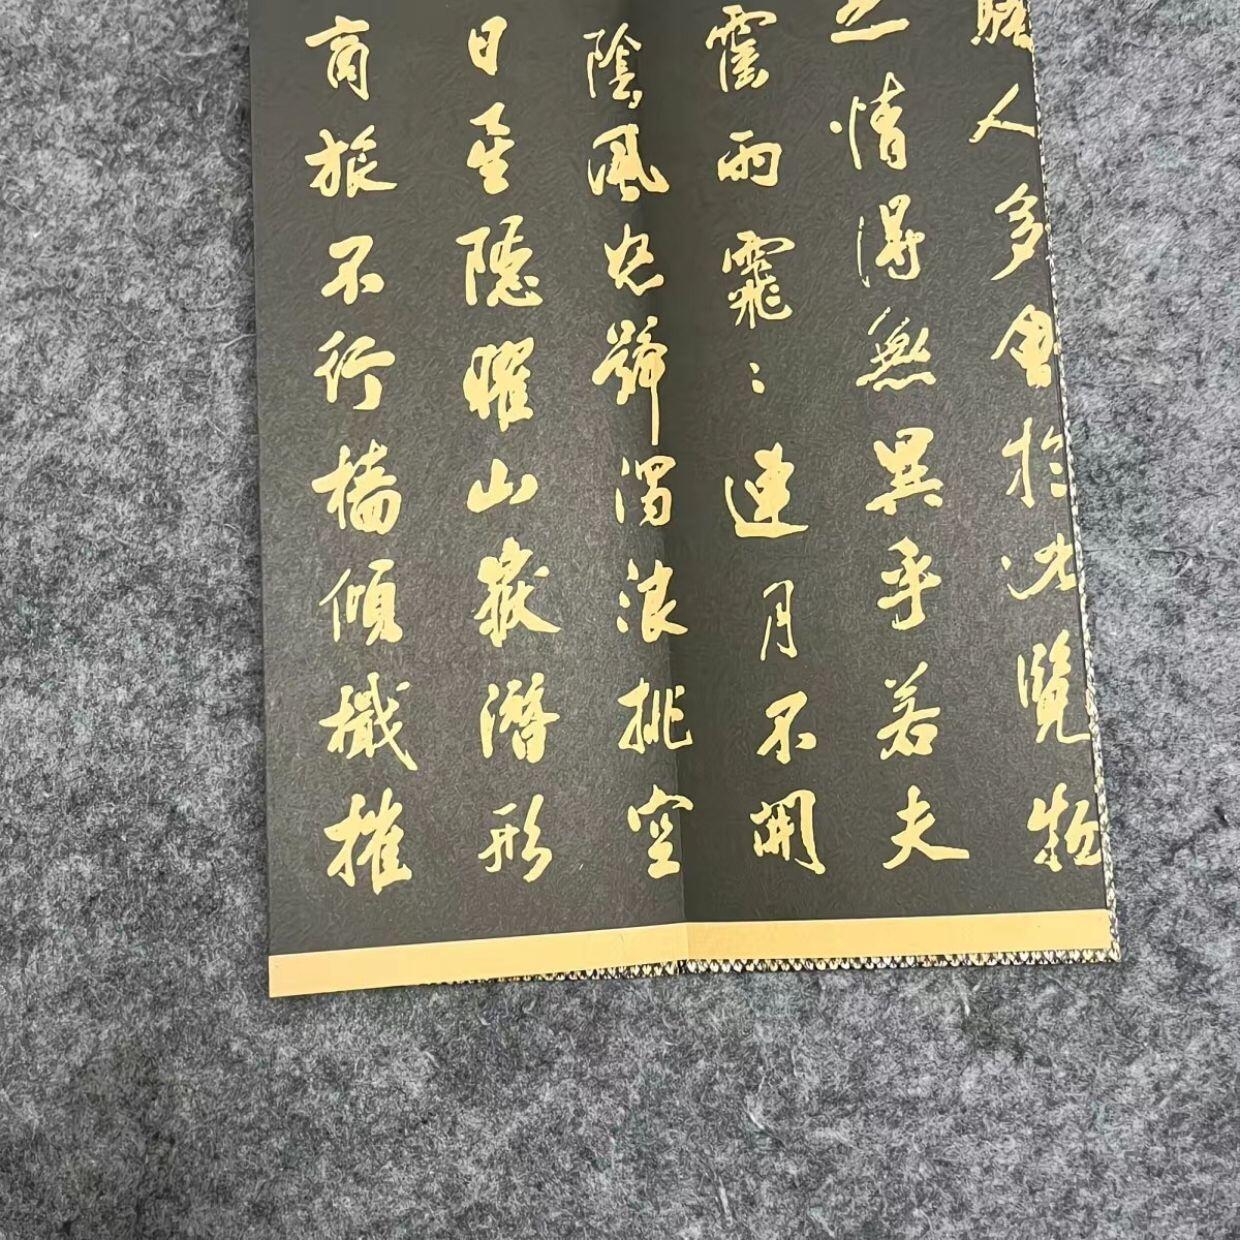 人多會於此覽物
之情得無異乎若夫
霪雨霏〻連月不開
陰風怒號濁浪排空
日星隱曜山嶽潛形
商旅不行檣傾檝摧